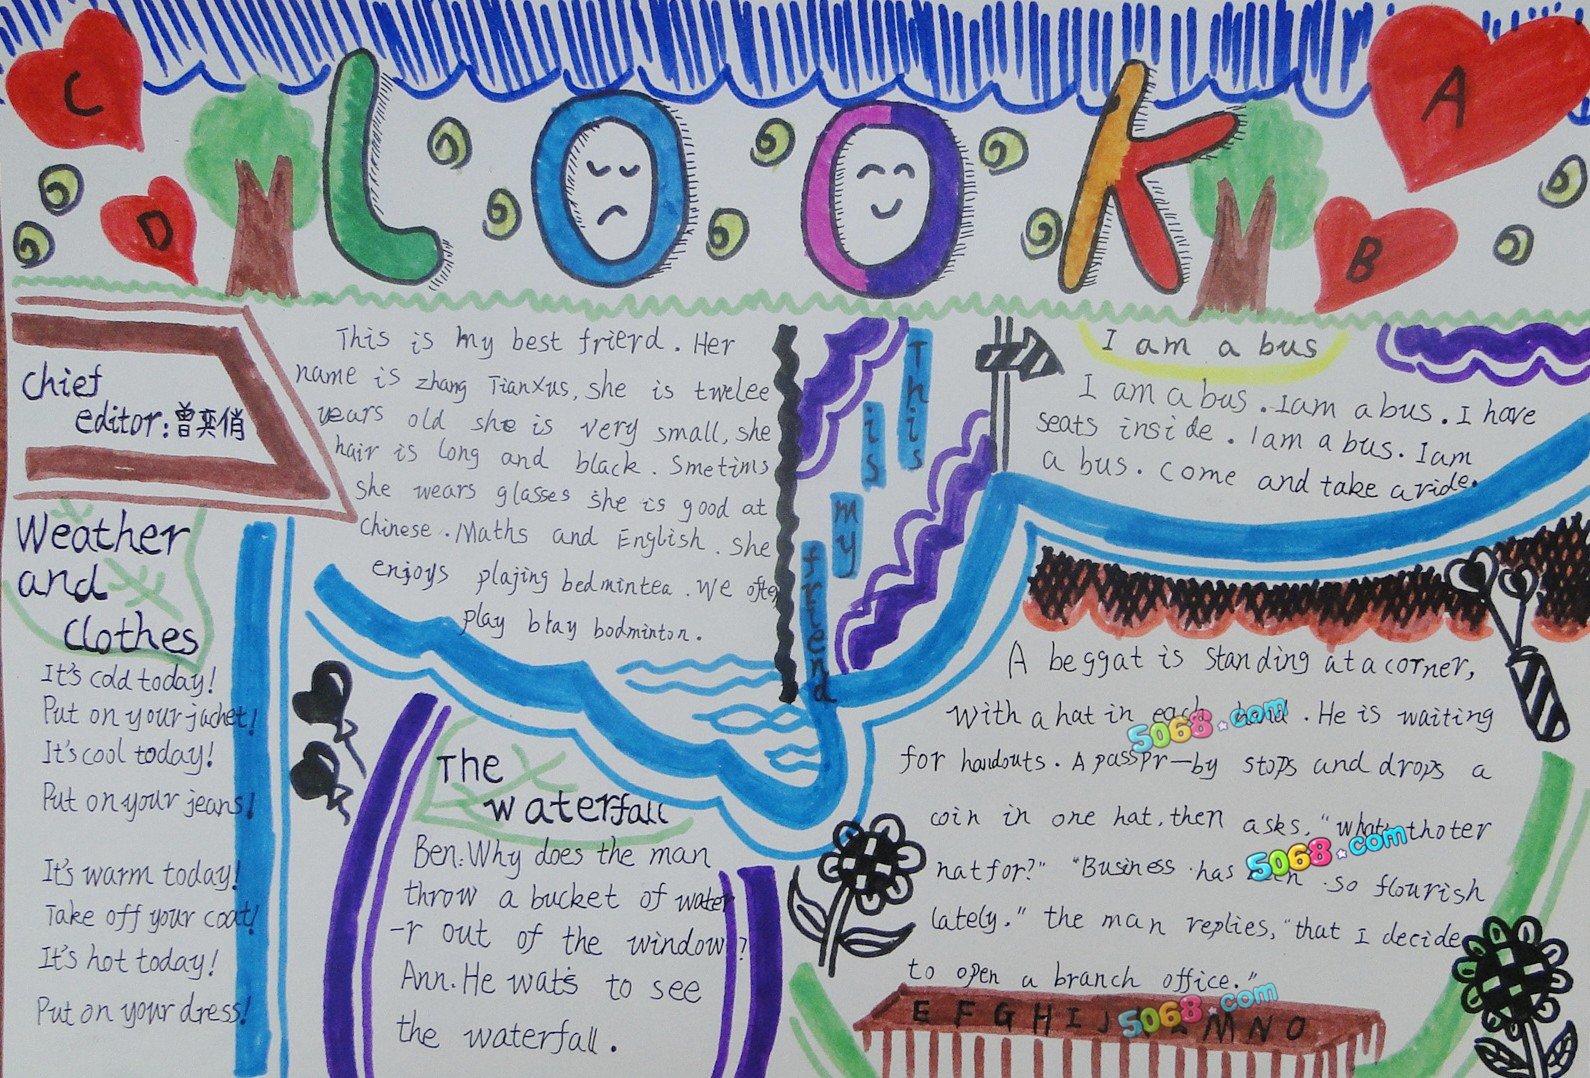 C
D
LOOK
A
B
Chief
editor:曾奕俏
This is my best frierd. Her
name is zhang TianXus, she is twelee
years old she is very small, she
hair is long and black. Smetims
she wears glasses she is good at
Chinese. Maths and English. She
enjoys plajing bedmintea. We often
play btay bodminton.
This
is
my
friend
I am a bus
I am a bus. Iam a bus. I have
seats inside. Iam a bus. Iam
a bus. Come and take a ride.
Weather
and
Clothes
It's cold today!
Put on your jacket!
It's cool today!
Put on your jeans!
It's warm today!
Take off your coat!
It's hot today!
Put on your dress!
The
waterfall
Ben: Why does the man
throw a bucket of water
-r out of the window?
Ann. He wats to see
the waterfall.
A beggat is standing at a corner,
With a hat in each. He is waiting
for handouts. A passpr-by stops and drops a
coin in one hat, then asks, "what thoter
hat for?" "Business has so flourish
lately." the man replies, "that I decide
to open a branch office."
E F G H I J M N O
5068.com
5068.com
5068.com